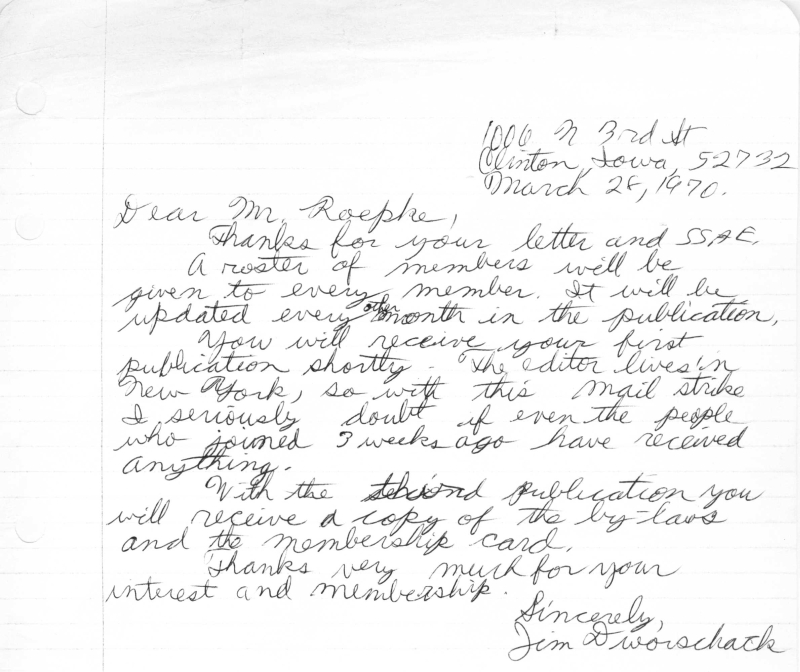 1006 N 3rd St
Clinton, Iowa, 52732
March 28, 1970.
Dear Mr. Roepke,
Thanks for your letter and SSAE.
A roster of members will be
given to every member. It will be
updated every other month in the publication.
You will receive your first
publication shortly. The editor lives in
New York, so with this mail strike
I seriously doubt if even the people
who joined 3 weeks ago have received
anything.
With the second publication you
will receive a copy of the by-laws
and the membership card.
Thanks very much for your
interest and membership.
Sincerely,
Jim Dworschack